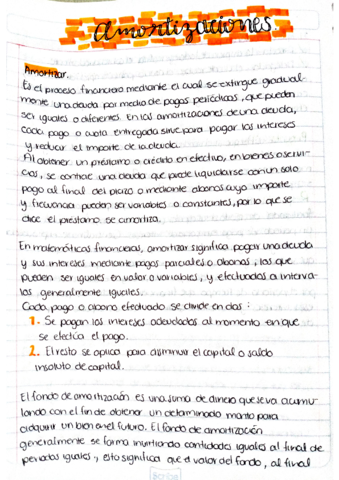 Amortizaciones
Amortizar.
Es el proceso financiero mediante el cual se extingue gradual-
mente una deuda por medio de pagos periódicos, que pueden
ser iguales o diferentes. En las amortizaciones de una deuda,
cada pago o cuota entregada sirve para pagar los intereses
y reducir el importe de la deuda.
Al obtener un préstamo o crédito en efectivo, en bienes o servi-
cios, se contrae una deuda que puede liquidarse con un solo
pago al final del plazo o mediante abonos cuyo importe
y frecuencia pueden ser variables o constantes, por lo que se
dice el préstamo se amortiza.
En matemáticas financieras, amortizar significa pagar una deuda
y sus intereses mediante pagos parciales o abonos, los que
pueden ser iguales en valor o variables, y efectuados a interva-
los generalmente iguales.
Cada pago o abono efectuado se divide en dos:
1. Se pagan los intereses adeudados al momento en que
se efectúa el pago.
2. El resto se aplica para disminuir el capital o saldo
insoluto de capital.
El fondo de amortización es una suma de dinero que se va acumu-
lando con el fin de obtener un determinado monto para
adquirir un bien en el futuro. El fondo de amortización
generalmente se forma invirtiendo cantidades iguales al final de
periodos iguales, esto significa que el valor del fondo, al final
Scribe